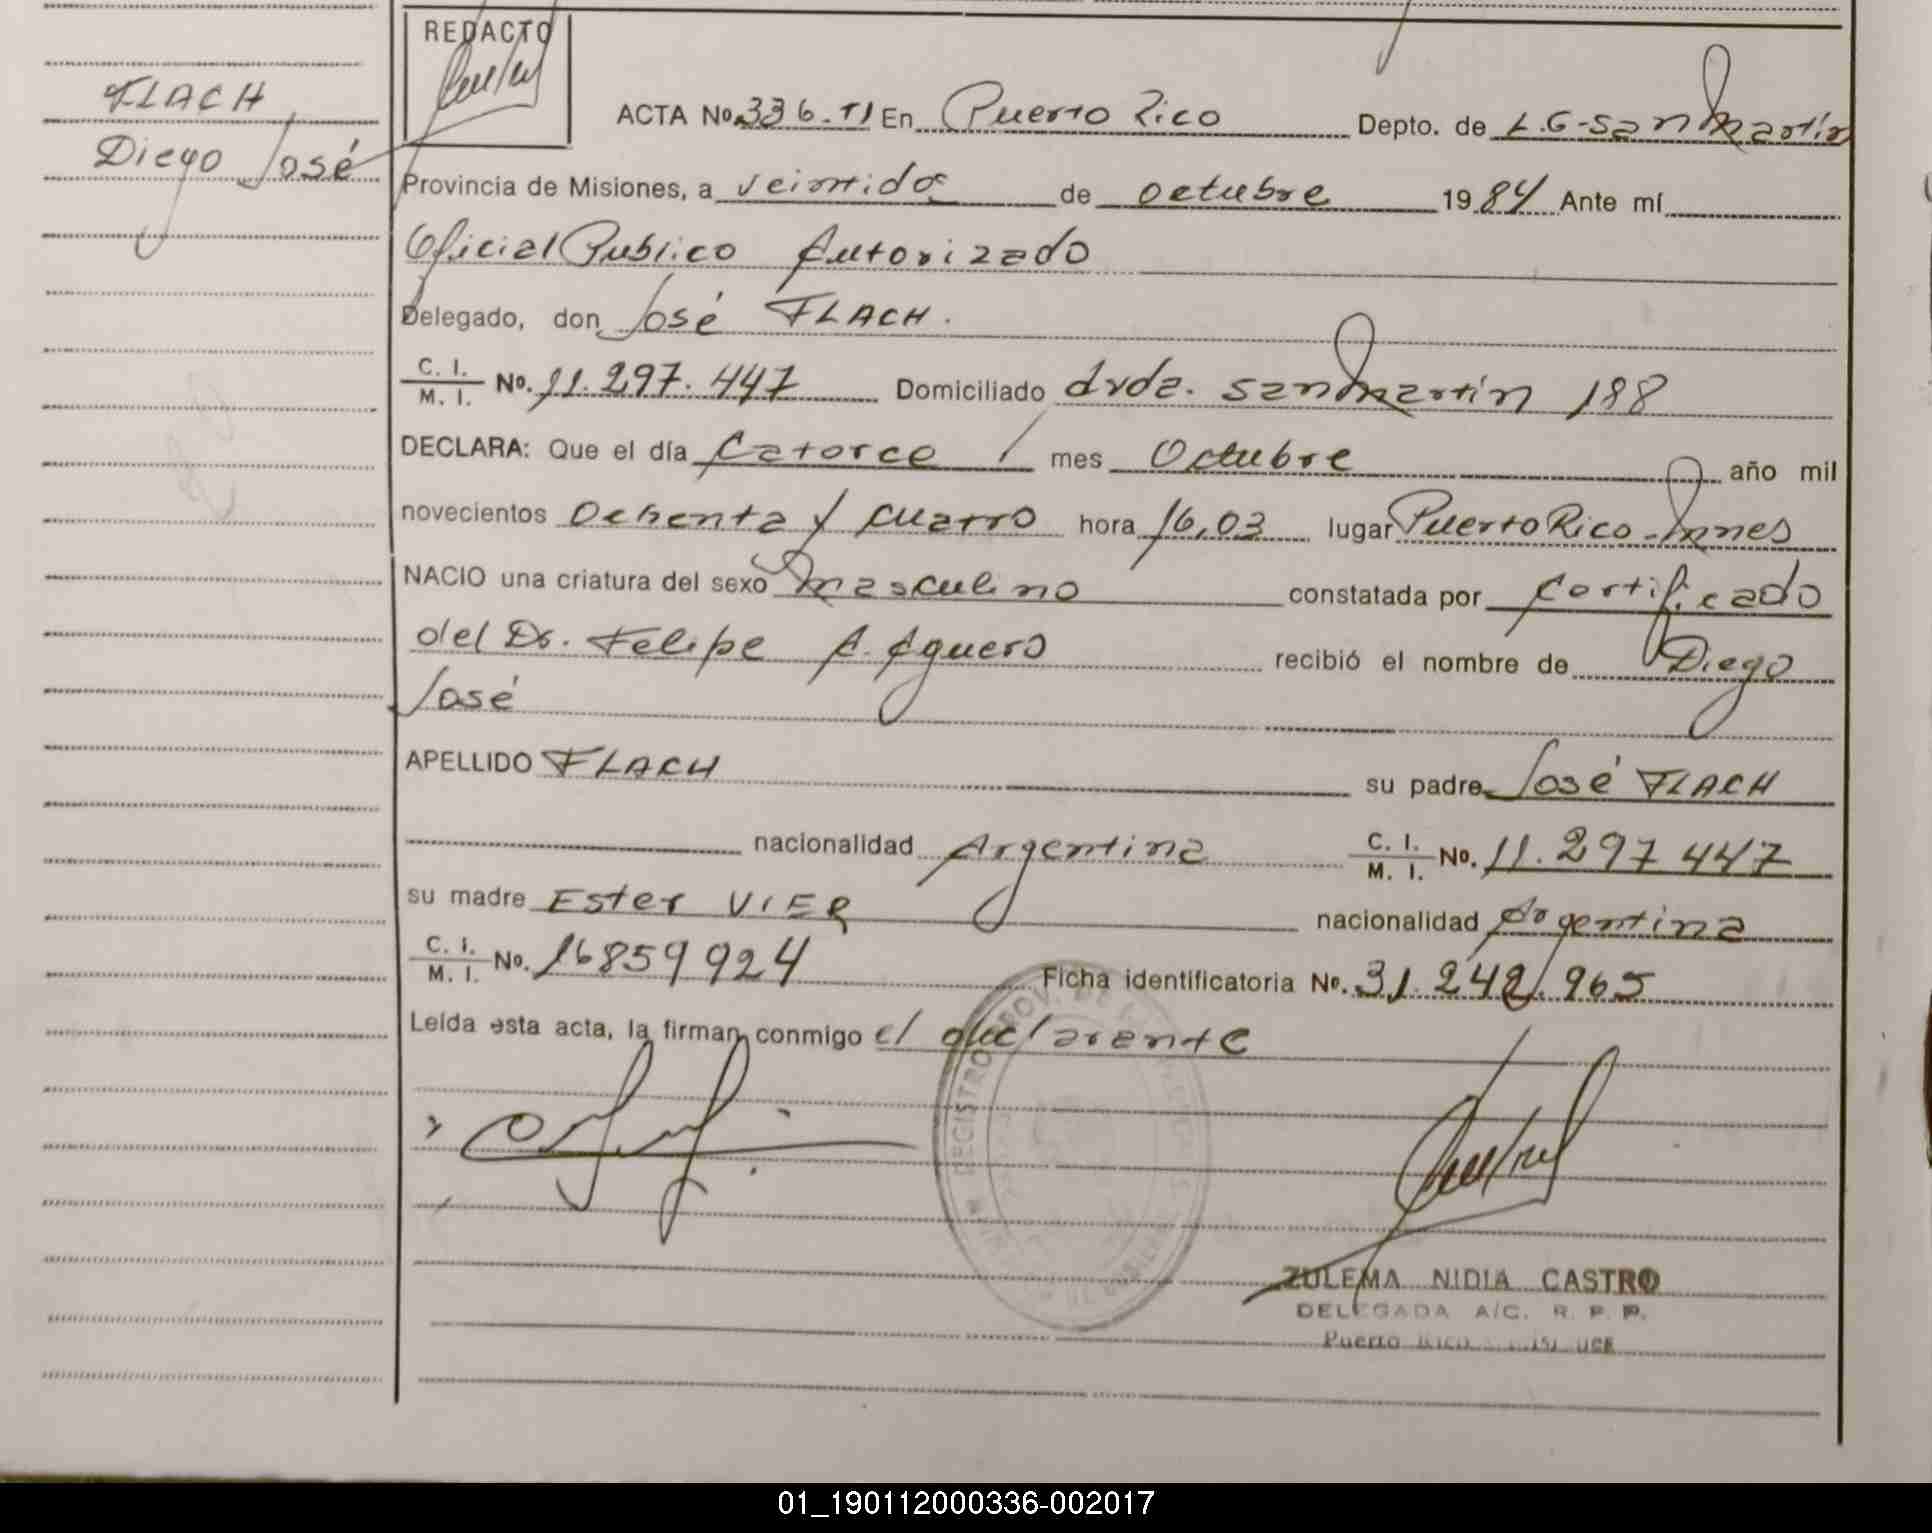 REDACTO
FLACH
Diego José
ACTA No. 336. TI En Puerto Rico Depto. de L.G-San Martín
Provincia de Misiones, a veintidos de octubre 1984 Ante mí
Oficial Publico Autorizado
Delegado, don José FLACH.
C. I. / M. I. No. 11.297.447 Domiciliado Avda. San Martín 188
DECLARA: Que el día Catorce / mes Octubre año mil
novecientos Ochenta y cuatro hora 16,03 lugar Puerto Rico - Mnes
NACIO una criatura del sexo masculino constatada por Certificado
del Dr. Felipe A. Aguero recibió el nombre de Diego
José
APELLIDO FLACH su padre José FLACH
nacionalidad Argentina C. I. / M. I. No. 11.297 447
su madre Ester VIER nacionalidad Argentina
C. I. / M. I. No. 16859924 Ficha identificatoria No. 31.242.965
Leída esta acta, la firman conmigo el declarante
ZULEMA NIDIA CASTRO
DELEGADA A/C. R. P. P.
Puerto Rico
01_190112000336-002017